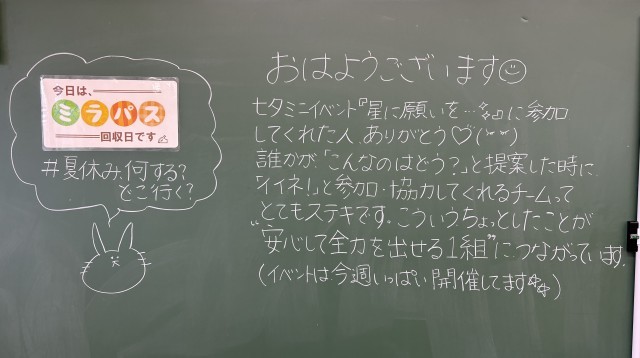 今日は、
ミラパス
回収日です
#夏休み何する?
どこ行く?
おはようございます
七夕ミニイベント『星に願いを…』に参加
してくれた人、ありがとう♡(
誰かが「こんなのはどう?」と提案した時に、
「イイネ!」と参加・協力してくれるチームって
とてもステキです。こういう、ちょっとしたことが
"安心して全力を出せる1組"につながっています。
(イベントは今週いっぱい開催してます)